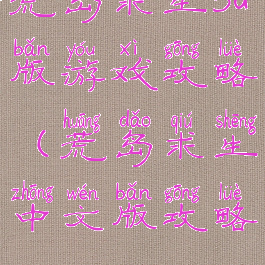 荒岛求生3d
bǎn yóu xì gōng lüè
版游戏攻略
huāng dǎo qiú shēng
（荒岛求生
zhōng wén bǎn gōng lüè
中文版攻略